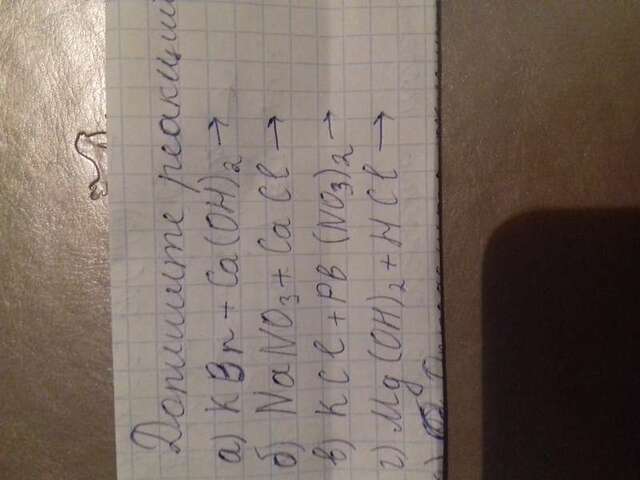 Допишите реакции
а) KBr + Ca(OH)₂ →
б) NaNO₃ + CaCl →
в) KCl + PB (NO₃)₂ →
г) Mg(OH)₂ + HCl →